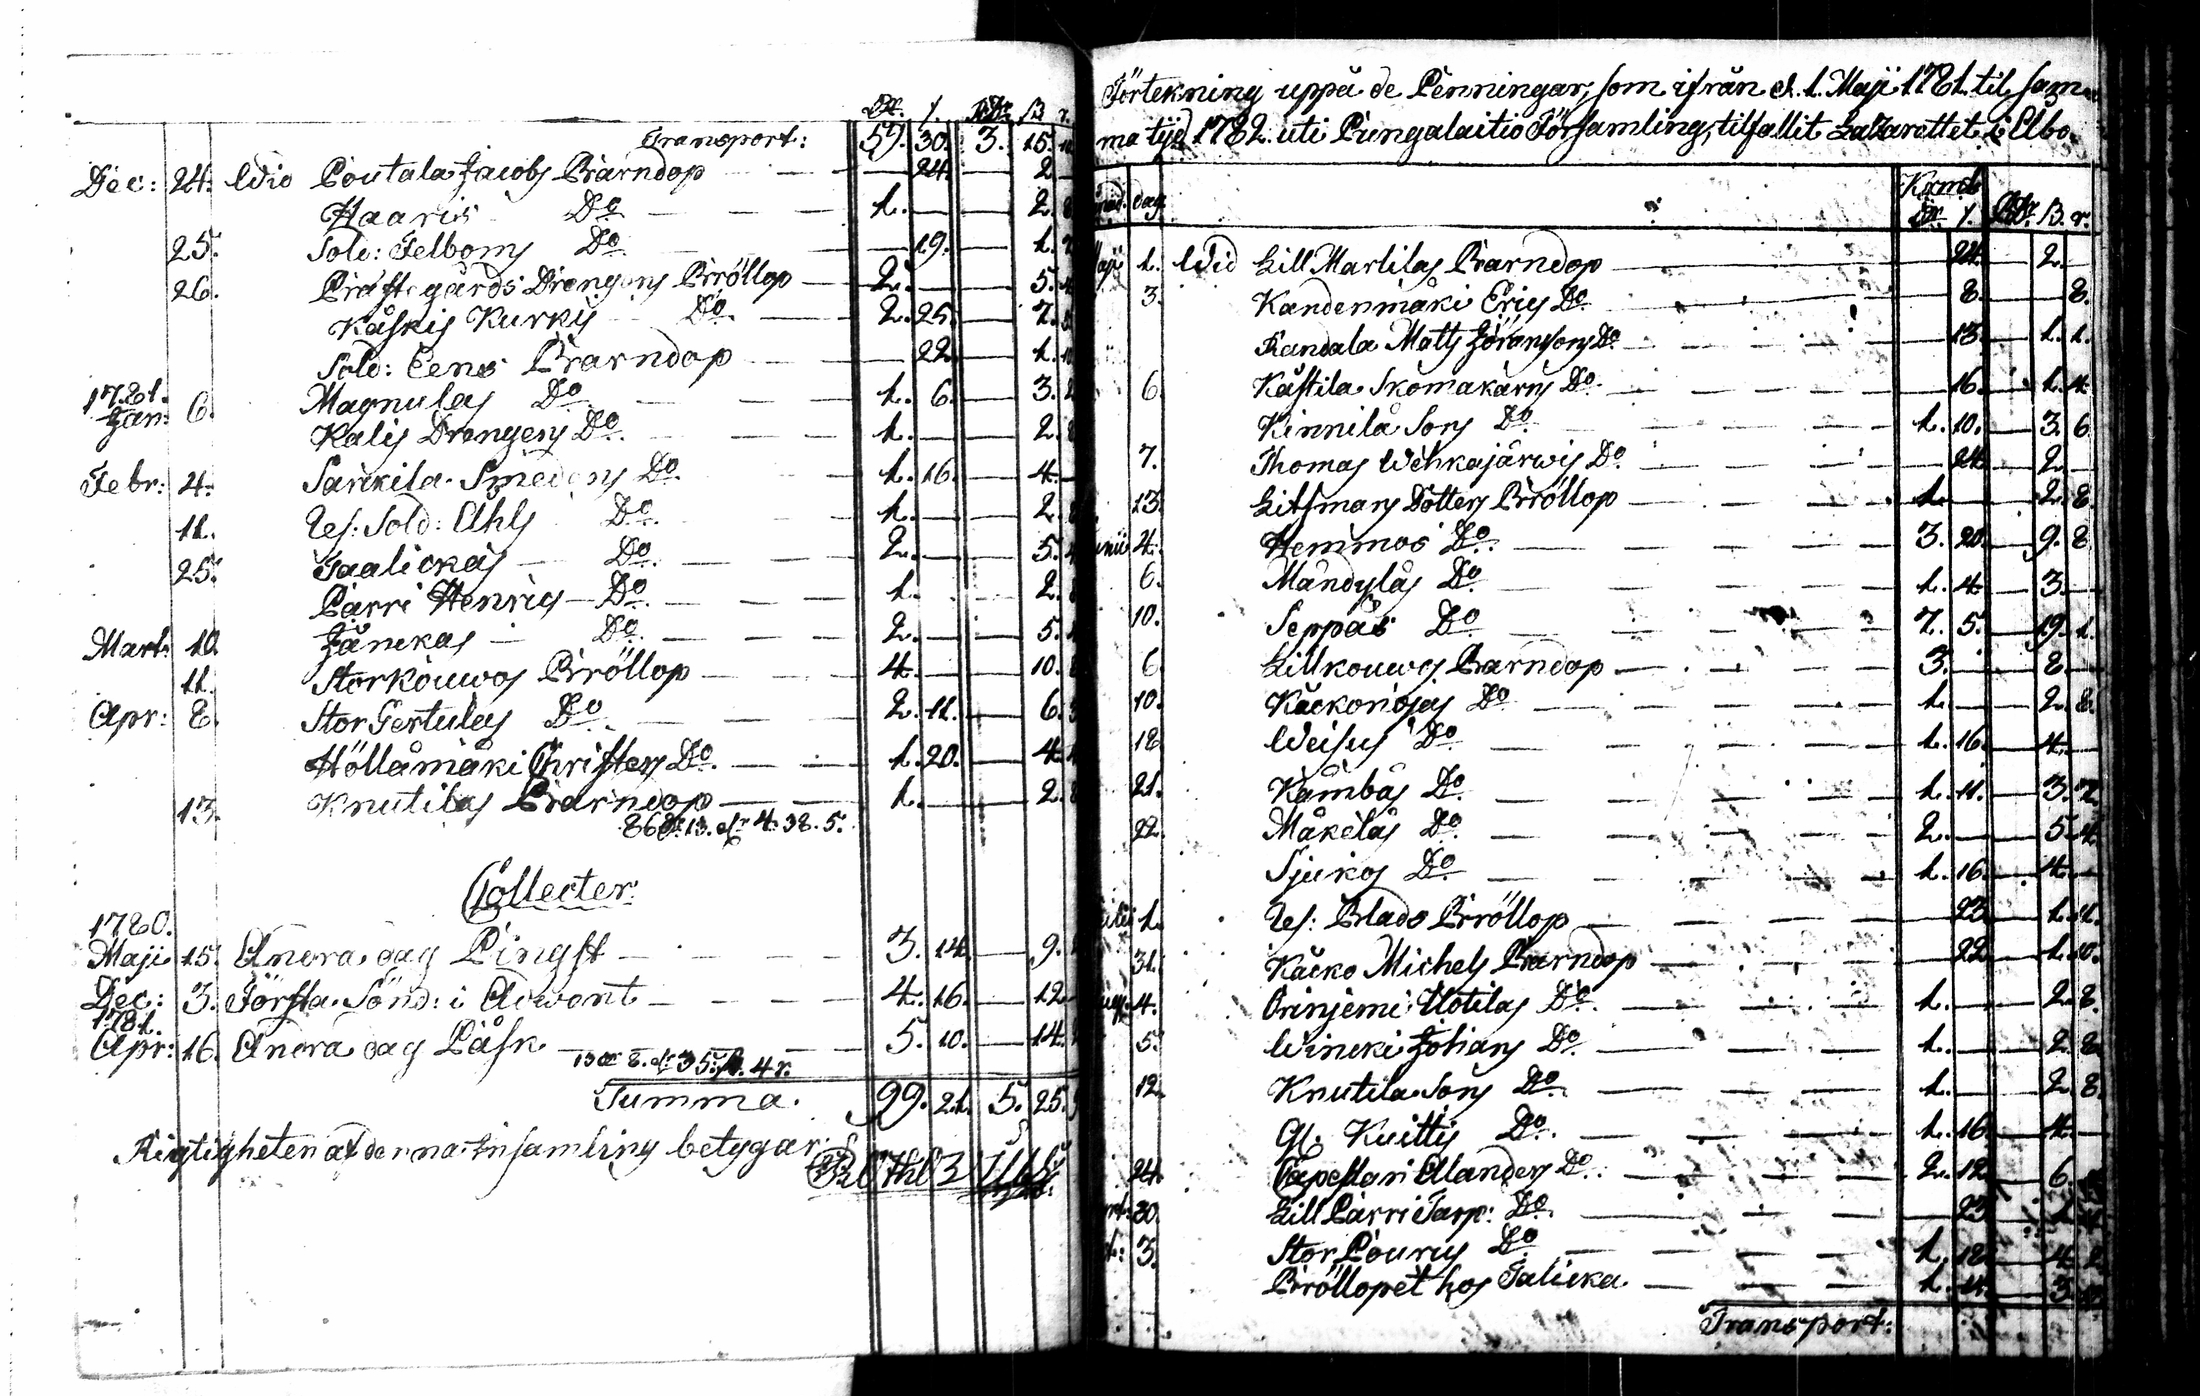 Dr. / Rdr ß r.
Transport: 59. 30. 3. 15.
Dec: 24. Wid Poutala Jacobs Barndop — 24. — 2.
Haaris Do — 1. — 2. 8
25. Sold: Felboms Do — 19. — 1.
26. Prästegårds Drengens Bröllop — 2. — 5.
Kåskis Kurkis Do — 2. 25. — 7.
Sold: Eens Barndop — 22. — 1.
1781.
Jan: 6. Magnulas Do — 1. 6. — 3.
Kalis Drengens Do — 1. — 2.
Febr: 4. Sarkila Smedens Do — 1. 16. — 4.
11. Res: Sold: Ahls Do — 1. — 2.
25. Taalickas — Do — 2. — 5.
Parri Henrics — Do — 1. — 2.
Mart: 10. Jänickas — Do — 2. — 5.
11. Storkouwos Bröllop — 4. — 10.
Apr: 8. Stor Gertulas Do — 2. 11. — 6.
Höllämäki Christers Do — 1. 20. — 4.
13. Knutilas Barndop — 1. — 2.
86 Dr. 13. 4. 38. 5.
Collecter:
1780.
Maji 15. Andra dag Pingst — 3. 14. — 9.
Dec: 3. Första Sönd: i Adwent — 4. 16. — 12
1781.
Apr: 16. Andra dag Påsk — 5. 10. — 14.
13 dr 8. 35 ß. 4 r.
Summa. 99. 21. 5. 25.
Rigtigheten af denna Insamling betygar
Förtekning uppå de Penningar, som ifrån d. 1. Maji 1781. til sam-
ma tijd 1782. uti Pungalaitio Församling, tilfallit Lazarettet i Åbo.
dag. Kpmt
Dr. / Rdr. ß. r.
1. Wid Lill Martilas Barndop — 24. — 2.
3. Kandenmäki Erics Do — 8. — 8.
Randala Matts Göransons Do — 13. — 1. 1.
6. Kastila Skomakarns Do — 16. — 1. 4
Kinnilä Sons Do — 1. 10. — 3. 6
7. Thomas Wehkajärwis Do — 24. — 2. —
13. Litsmans Dotters Bröllop — 1. — 2. 8.
4. Hemmos Do — 3. 20. — 9. 8
6. Mandyläs Do — 1. 4. — 3. —
10. Seppäs Do — 7. 5. — 19. 1.
6. Lillkouwos Barndop — 3. — 8. —
10. Kackonojas Do — 1. — 2. 8.
18. Weisus Do — 1. 16. — 4. —
21. Kambas Do — 1. 11. — 3. 7.
22. Mäkeläs Do — 2. — 5. 4.
Sjukos Do — 1. 16. — 4. —
1. Res: Blads Bröllop — 23. — 1. 11.
31. Kacko Michels Barndop — 22. — 1. 10.
4. Orinjemi Uotilas Do — 1. — 2. 8.
5. Wincki Johans Do — 1. — 2. 8.
12. Knutila Sons Do — 1. — 2. 8.
Gl. Kuittis Do — 1. 16. — 4. —
24. Capellan Elanders Do — 2. 12. — 6.
30. Lill Parri Tarp: Do — 23.
3. Stor Pourus Do — 1. 18. — 4.
Bröllopet hos Talicka — 1. 11. — 3.
Transport: